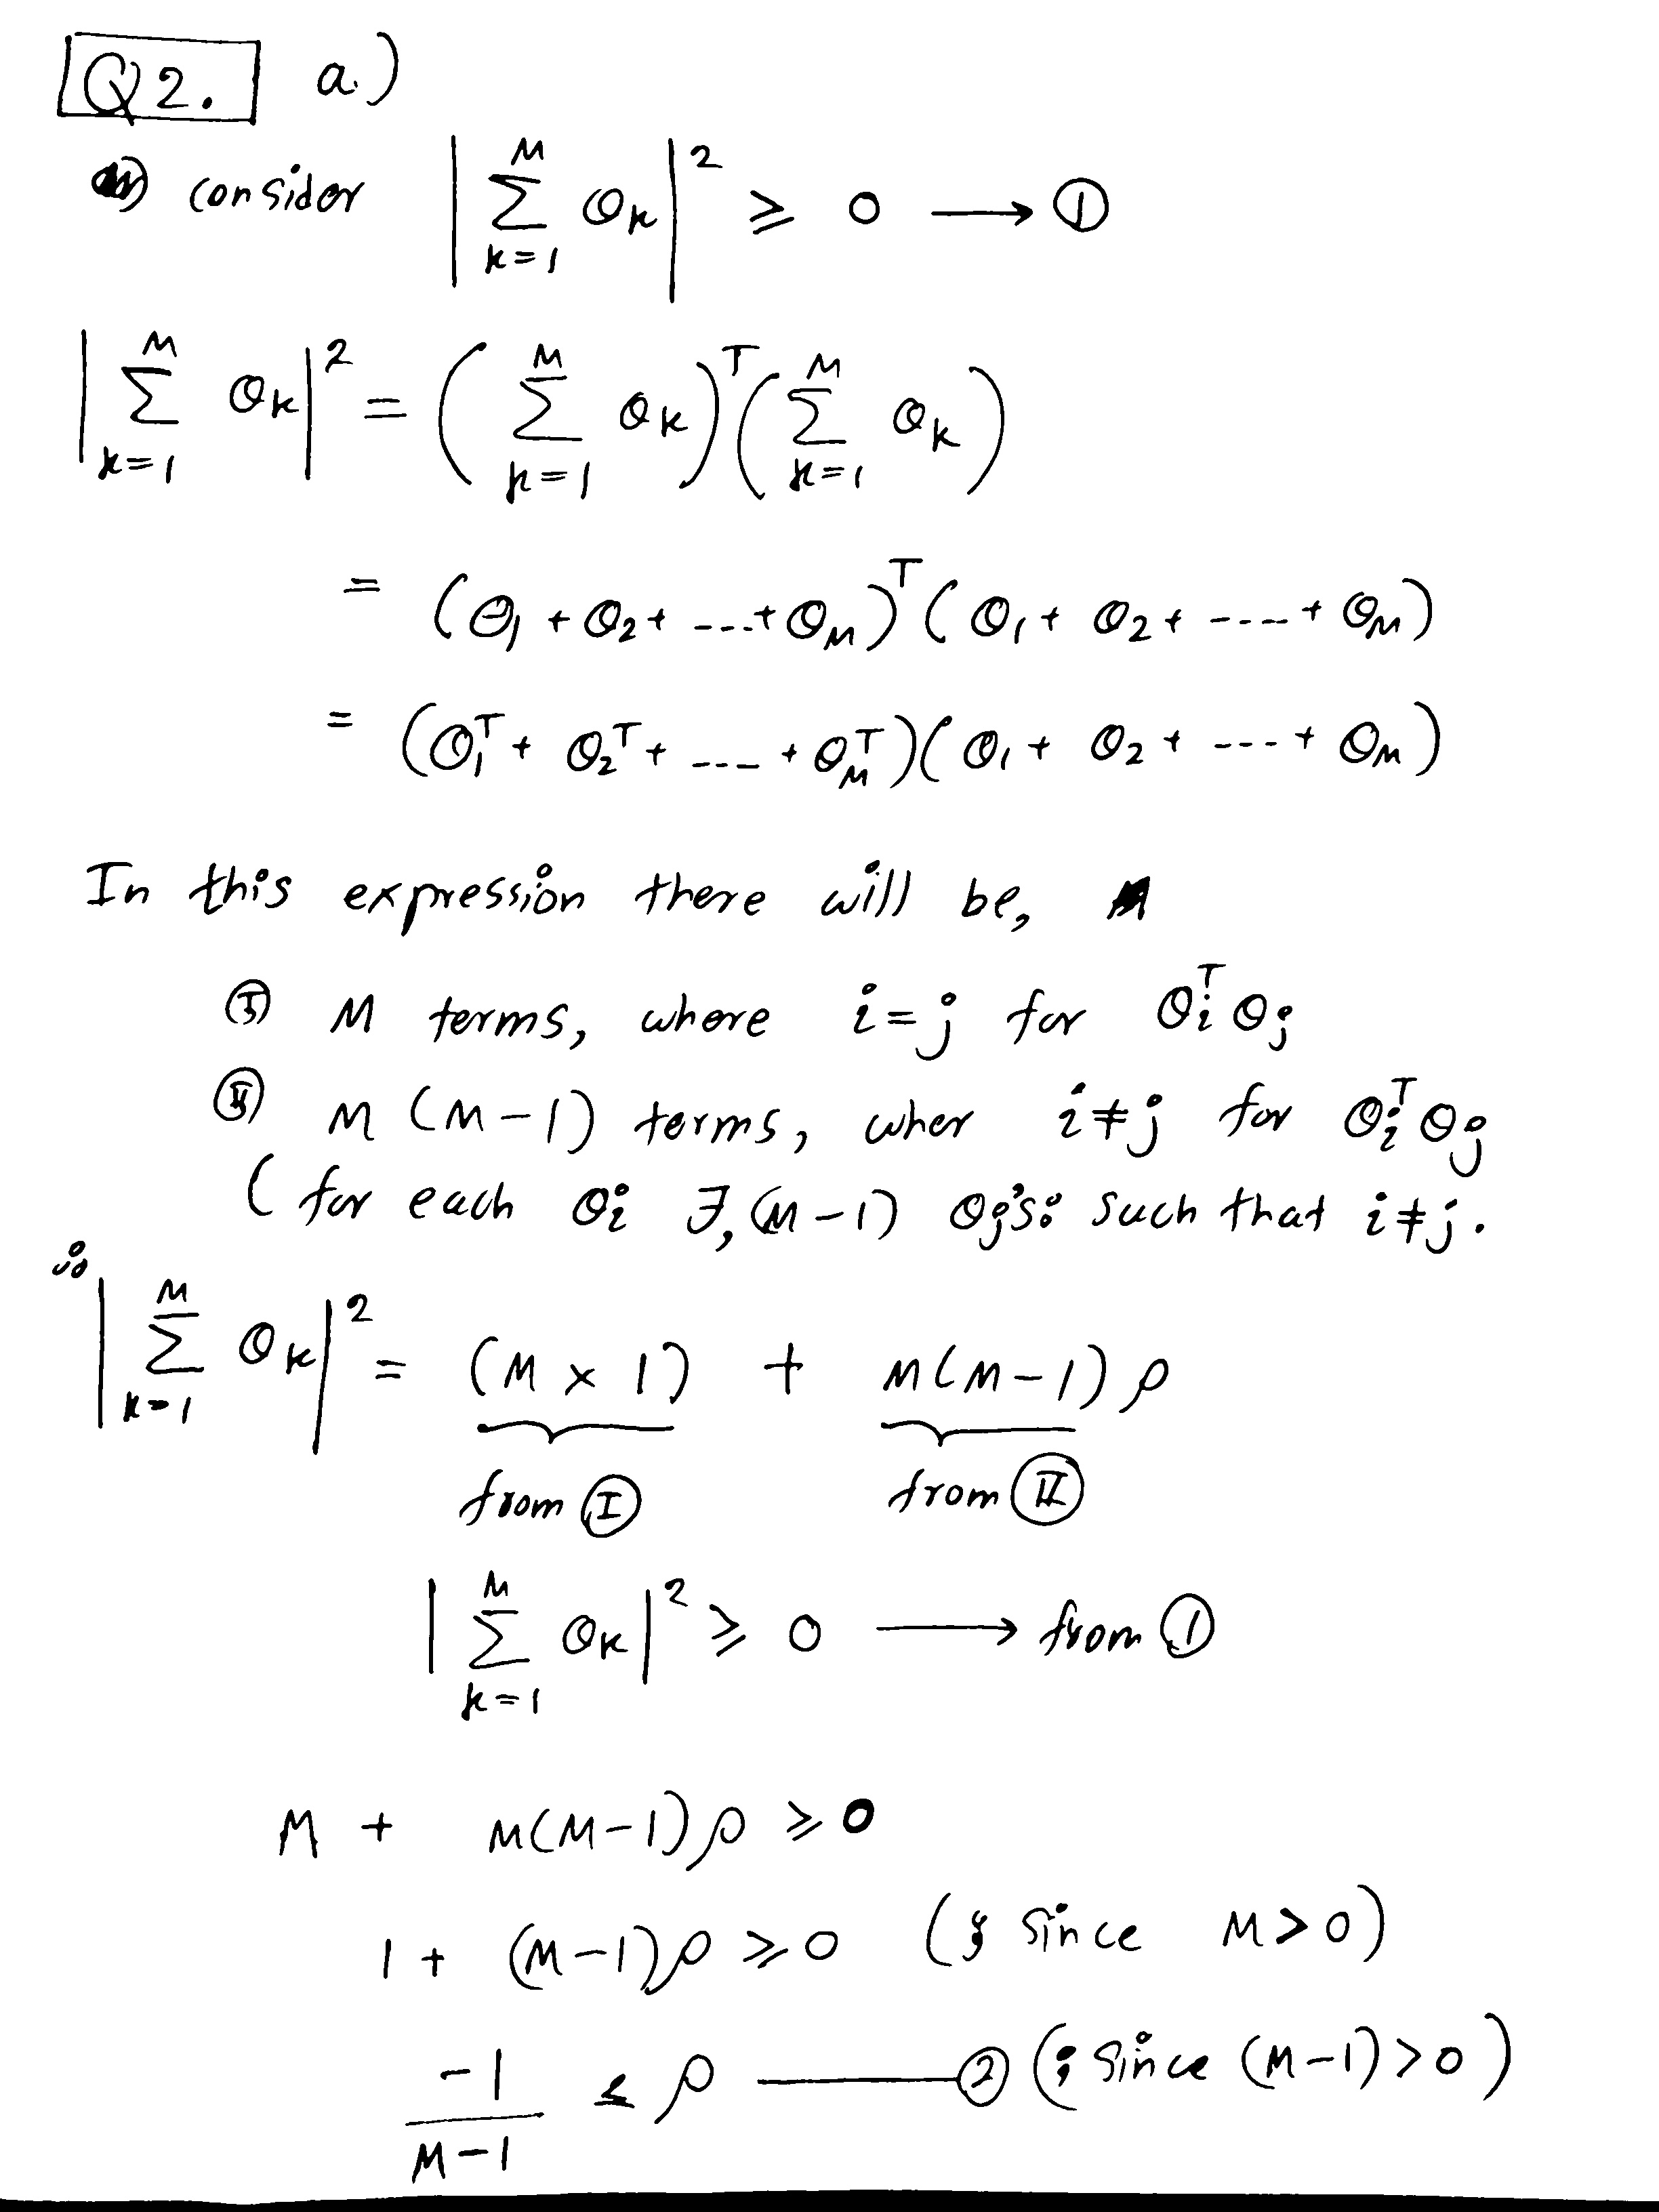 Q2. a.)
consider |∑_{k=1}^{M} θ_k|² ≥ 0 ⟶ ①
|∑_{k=1}^{M} θ_k|² = (∑_{k=1}^{M} θ_k)^T (∑_{k=1}^{M} θ_k)
= (θ₁ + θ₂ + ----+ θ_M)^T (θ₁ + θ₂ + ----+ θ_M)
= (θ₁^T + θ₂^T + ---- + θ_M^T)(θ₁ + θ₂ + ---+ θ_M)
In this expression there will be,
Ⓘ M terms, where i=j for θ_i^T θ_j
Ⓘ︎Ⓘ M (M-1) terms, wher i≠j for θ_i^T θ_j
( for each θ_i ∃, (M-1) θ_j's: such that i≠j.
∴ |∑_{k=1}^{M} θ_k|² = (M × 1) + M(M-1) ρ
from Ⓘ from (II)
|∑_{k=1}^{M} θ_k|² ≥ 0 ⟶ from ①
M + M(M-1) ρ ≥ 0
1 + (M-1) ρ ≥ 0 (; Since M > 0)
-1/(M-1) ≤ ρ —— ② (; Since (M-1) > 0)